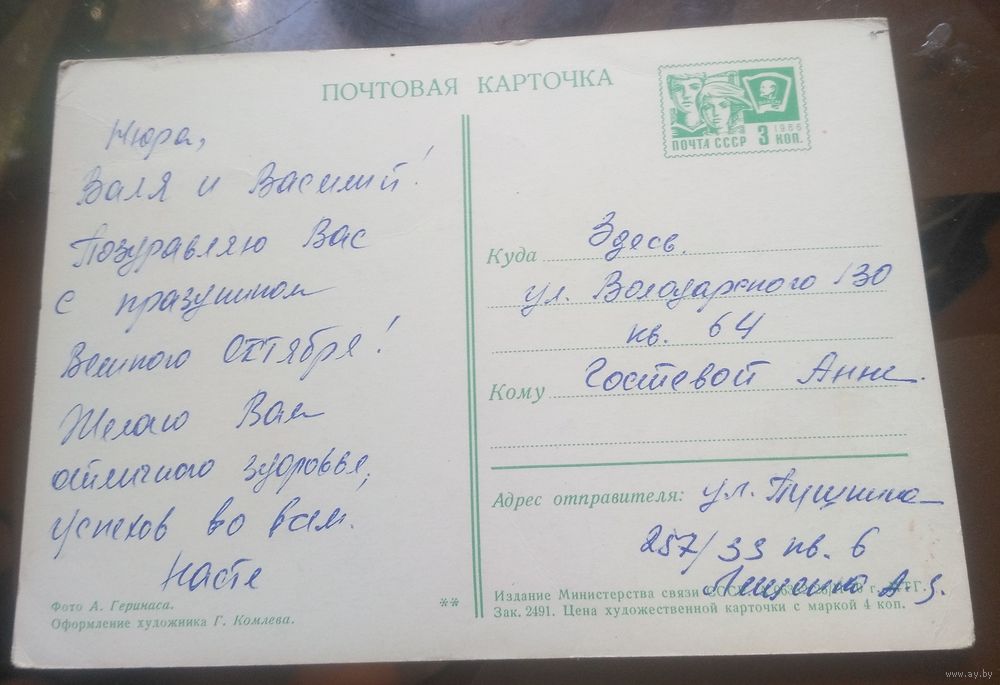 ПОЧТОВАЯ КАРТОЧКА
1966
ПОЧТА СССР 3 КОП.
Нюра,
Валя и Василий!
Поздравляю Вас
с праздником
Великого Октября!
Желаю Вам
отличного здоровья,
успехов во всем.
Настя
Фото А. Геринаса.
Оформление художника Г. Комлева.
**
Куда Здесь.
ул. Володарского 130
кв. 64
Кому Гостевой Анне.
Адрес отправителя: ул. Пушкина
257/33 кв. 6
А. З.
Издание Министерства связи СССР
Зак. 2491. Цена художественной карточки с маркой 4 коп.
www.ay.by